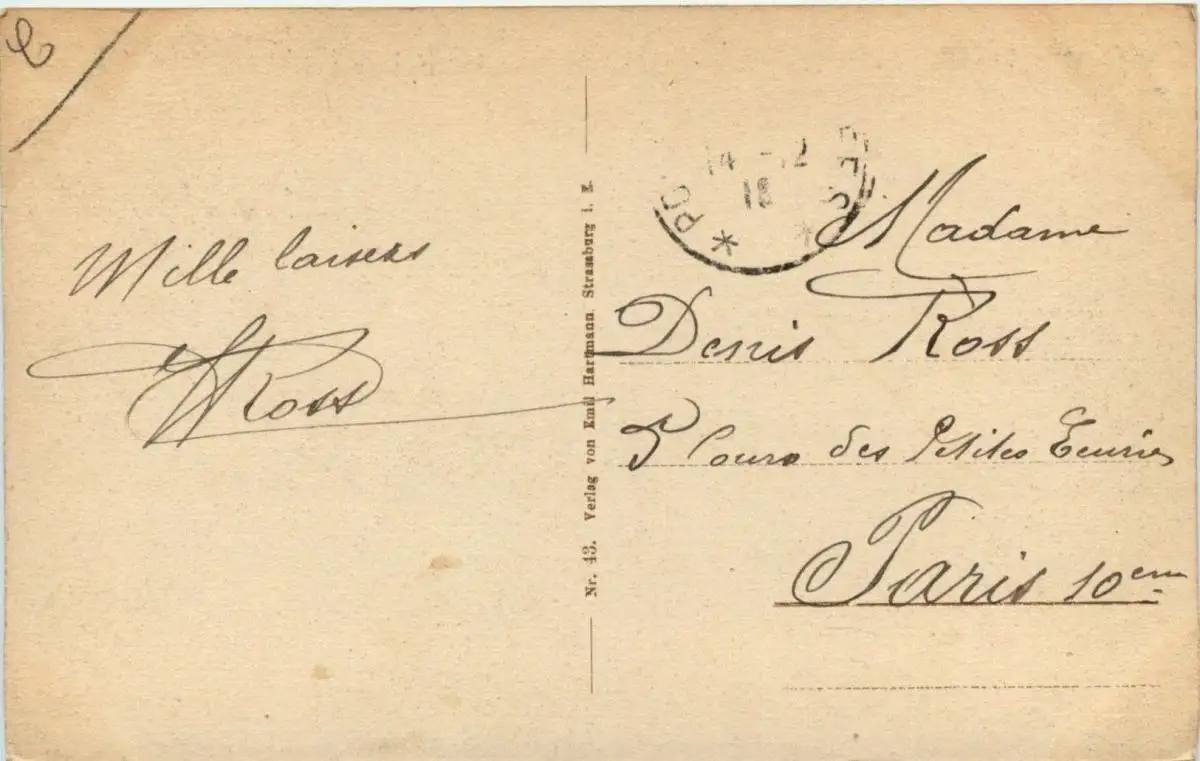 Mille baisers
Ross
Nr. 43. Verlag von Emil Hartmann, Strassburg i. E.
14 - 12
18
* PO
ES *
Madame
Denis Ross
5 Cours des Petites Ecuries
Paris 10em